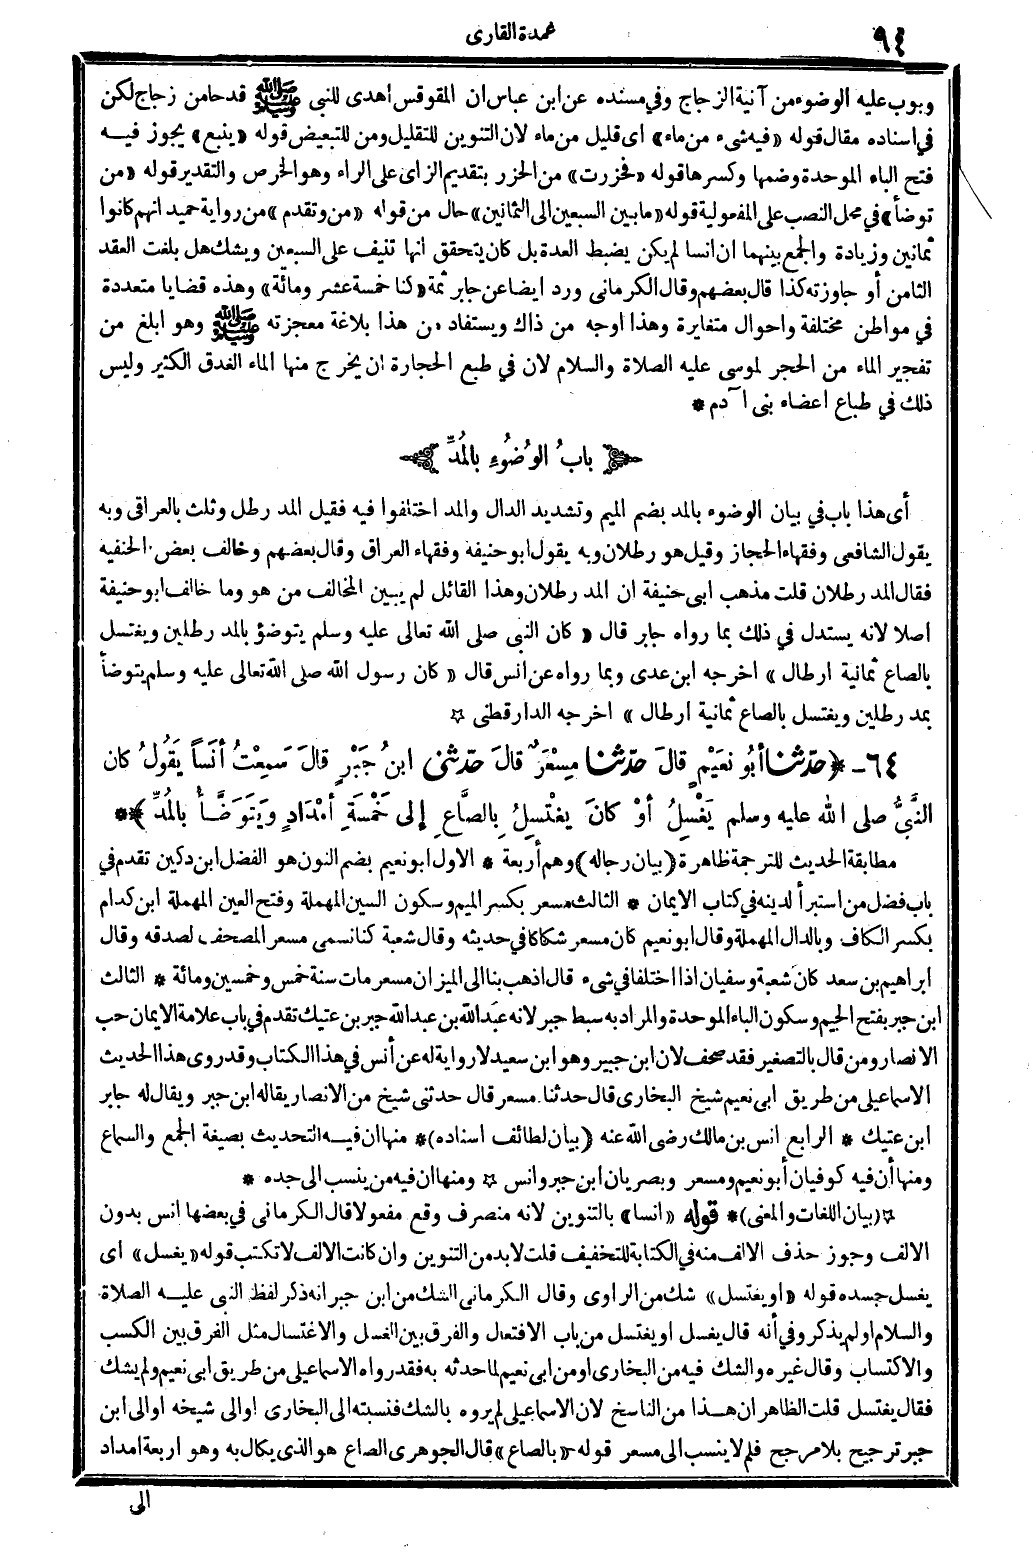 ٩٤
عمدة القارى
وبوب عليه الوضوء من آنية الزجاج وفي مسنده عن ابن عباس ان المقوقس اهدى للنبى ﷺ قدحا من زجاج لكن
في اسناده مقال قوله «فيه شىء من ماء» اى قليل من ماء لان التنوين للتقليل ومن للتبعيض قوله «ينبع» يجوز فيه
فتح الباء الموحدة وضمها وكسرها قوله «فخزرت» من الخزر بتقديم الزاى على الراء وهو الخرص والتقدير قوله «من
توضأ» في محل النصب على المفعولية قوله «ما بين السبعين الى الثمانين» حال من قوله «من وتقدم» من رواية حميد انهم كانوا
ثمانين وزيادة والجمع بينهما ان انسا لم يكن يضبط العدة بل كان يتحقق انها تنيف على السبعين ويشك هل بلغت العقد
الثامن أو جاوزته كذا قال بعضهم وقال الكرمانى ورد ايضا عن جابر ثمة «كنا خمسة عشر ومائة» وهذه قضايا متعددة
في مواطن مختلفة واحوال متغايرة وهذا اوجه من ذاك ويستفاد من هذا بلاغة معجزته ﷺ وهو ابلغ من
تفجير الماء من الحجر لموسى عليه الصلاة والسلام لان في طبع الحجارة ان يخرج منها الماء الغدق الكثير وليس
ذلك في طباع اعضاء بنى آدم *
بابُ الوُضُوءِ بالمُدِّ
أى هذا باب في بيان الوضوء بالمد بضم الميم وتشديد الدال والمد اختلفوا فيه فقيل المد رطل وثلث بالعراقى وبه
يقول الشافعى وفقهاء الحجاز وقيل هو رطلان وبه يقول ابو حنيفة وفقهاء العراق وقال بعضهم وخالف بعض الحنفية
فقال المد رطلان قلت مذهب ابى حنيفة ان المد رطلان وهذا القائل لم يبين المخالف من هو وما خالف ابو حنيفة
اصلا لانه يستدل في ذلك بما رواه جابر قال «كان النبى صلى الله تعالى عليه وسلم يتوضؤ بالمد رطلين ويغتسل
بالصاع ثمانية ارطال» اخرجه ابن عدى وبما رواه عن انس قال «كان رسول الله صلى الله تعالى عليه وسلم يتوضأ
بمد رطلين ويغتسل بالصاع ثمانية ارطال» اخرجه الدارقطنى ☆
٦٤ ـ ﴿حدّثنا أبُو نعَيْمٍ قالَ حدّثنا مِسْعَرٌ قالَ حدّثنى ابنُ جَبْرٍ قالَ سَمِعْتُ أنَساً يَقُولُ كان
النَّبيُّ صلى الله عليه وسلم يَغْسِلُ أوْ كانَ يغْتسِلُ بِالصَّاعِ إلى خَمْسَةِ أمْدَادٍ ويَتَوَضَّأُ بالمُدِّ﴾**
مطابقة الحديث للترجمة ظاهرة (بيان رجاله) وهم أربعة * الاول ابو نعيم بضم النون هو الفضل ابن دكين تقدم في
باب فضل من استبرأ لدينه في كتاب الايمان * الثالث مسعر بكسر الميم وسكون السين المهملة وفتح العين المهملة ابن كدام
بكسر الكاف وبالدال المهملة وقال ابو نعيم كان مسعر شكاكا في حديثه وقال شعبة كنا نسمى مسعر المصحف لصدقه وقال
ابراهيم بن سعد كان شعبة وسفيان اذا اختلفا في شىء قال اذهب بنا الى الميزان مسعر مات سنة خمس وخمسين ومائة * الثالث
ابن جبر بفتح الجيم وسكون الباء الموحدة والمراد به سبط جبر لانه عبد الله بن عبد الله جبر بن عتيك تقدم في باب علامة الايمان حب
الانصار ومن قال بالتصغير فقد صحف لان ابن جبير وهو ابن سعيد لا رواية له عن أنس في هذا الكتاب وقد روى هذا الحديث
الاسماعيلى من طريق ابى نعيم شيخ البخارى قال حدثنا مسعر قال حدثنى شيخ من الانصار يقال له ابن جبر ويقال له جابر
ابن عتيك * الرابع انس بن مالك رضى الله عنه (بيان لطائف اسناده)* منها ان فيه التحديث بصيغة الجمع والسماع
ومنها أن فيه كوفيان أبو نعيم ومسعر وبصريان ابن جبر وانس ☆ ومنها ان فيه من ينسب الى جده *
☆(بيان اللغات والمعنى)* قوله «انسا» بالتنوين لانه منصرف وقع مفعولا قال الكرمانى في بعضها انس بدون
الالف وجوز حذف الالف منه في الكتابة للتخفيف قلت لابد من التنوين وان كانت الالف لا تكتب قوله «يغسل» اى
يغسل جسده قوله «او يغتسل» شك من الراوى وقال الكرمانى الشك من ابن جبر انه ذكر لفظ النبى عليه الصلاة
والسلام او لم يذكر وفي أنه قال يغسل او يغتسل من باب الافتعال والفرق بين الغسل والاغتسال مثل الفرق بين الكسب
والاكتساب وقال غيره والشك فيه من البخارى او من ابى نعيم لما حدثه به فقد رواه الاسماعيلى من طريق ابى نعيم ولم يشك
فقال يغتسل قلت الظاهر ان هذا من الناسخ لان الاسماعيلى لم يروه بالشك فنسبته الى البخارى او الى شيخه او الى ابن
جبر ترجيح بلا مرجح فلم لا ينسب الى مسعر قوله «بالصاع» قال الجوهرى الصاع هو الذى يكال به وهو اربعة امداد
الى